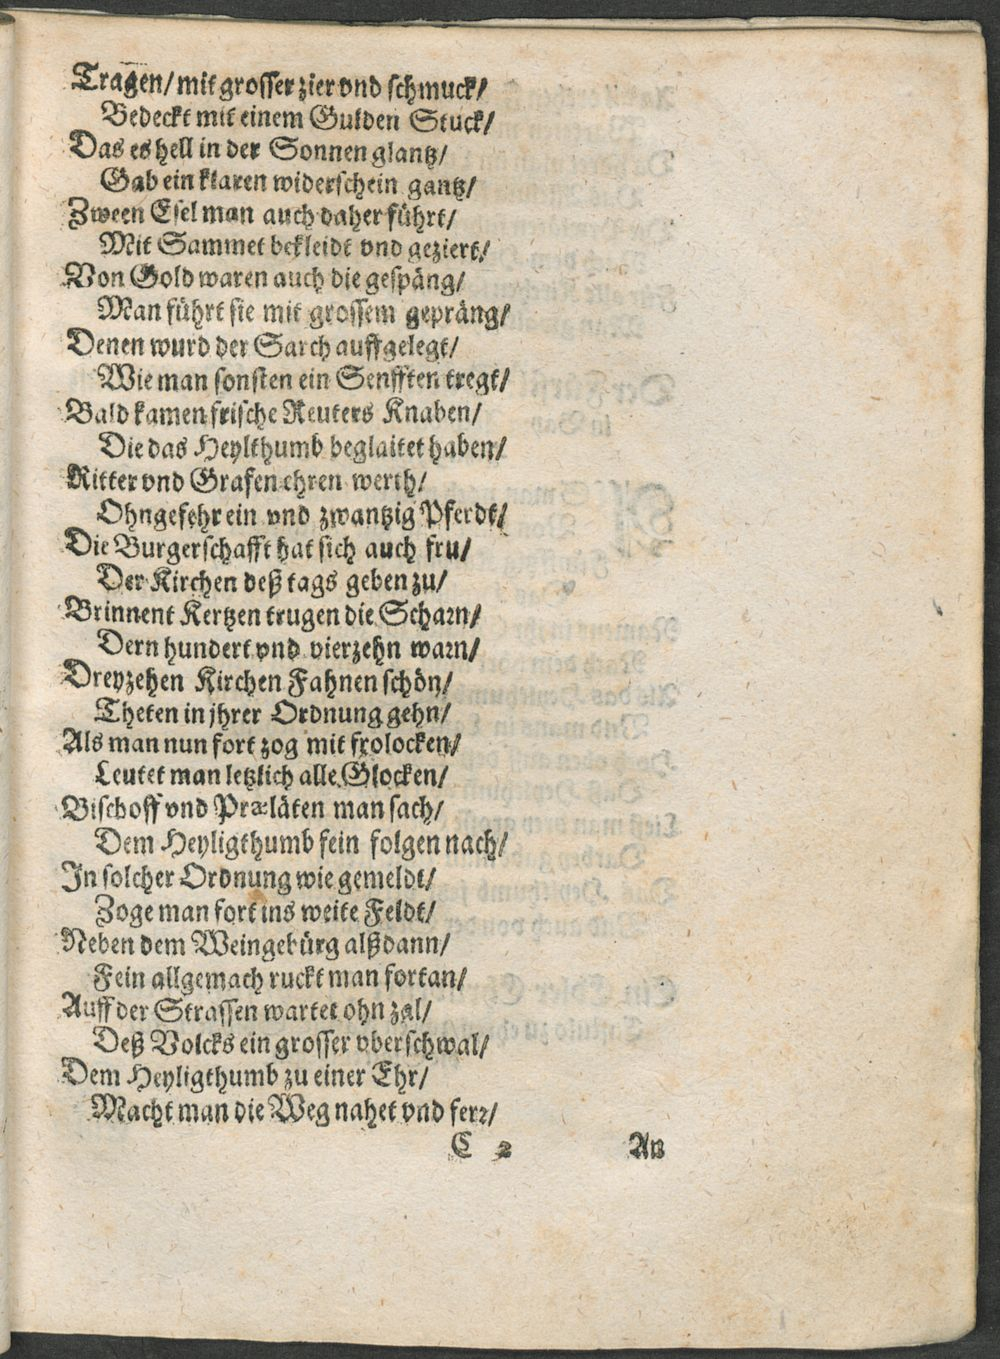 Tragen/ mit grosser zier vnd schmuck/
Bedeckt mit einem Gulden Stuck/
Das es hell in der Sonnen glantz/
Gab ein klaren widerschein gantz/
Zween Esel man auch daher führt/
Mit Sammet bekleidt vnd geziert/
Von Gold waren auch die gespäng/
Man führt sie mit grossem gepräng/
Denen wurd der Sarch auffgelegt/
Wie man sonsten ein Senfften tregt/
Bald kamen frische Reuters Knaben/
Die das Heylthumb beglaitet haben/
Ritter vnd Grafen ehren werth/
Ohngefehr ein vnd zwantzig Pferdt/
Die Burgerschafft hat sich auch fru/
Der Kirchen deß tags geben zu/
Brinnent Kertzen trugen die Scharn/
Dern hundert vnd vierzehn warn/
Dreyzehen Kirchen Fahnen schön/
Theten in jhrer Ordnung gehn/
Als man nun fort zog mit frolocken/
Leutet man letzlich alle Glocken/
Bischoff vnd Prælaten man sach/
Dem Heyligthumb fein folgen nach/
In solcher Ordnung wie gemeldt/
Zoge man fort ins weite Feldt/
Neben dem Weingebürg alßdann/
Fein allgemach ruckt man fortan/
Auff der Strassen wartet ohn zal/
Deß Volcks ein grosser vberschwal/
Dem Heyligthumb zu einer Ehr/
Macht man die Weg nahet vnd ferr/
C 2 An